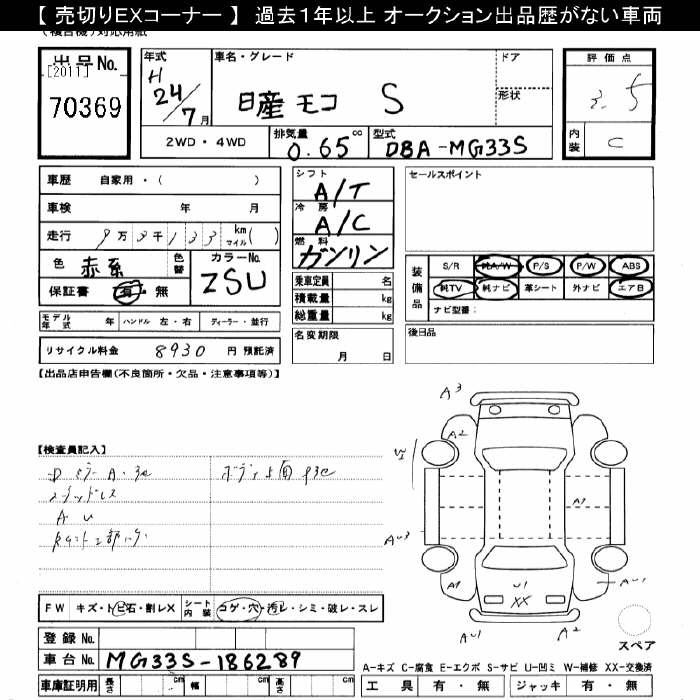 【 売切りEXコーナー 】 過去1年以上 オークション出品歴がない車両
(複合機)対応用紙
出品No.
[2011]
70369
年式
H
24/7月
車名・グレード
日産 モコ S
ドア
形状
評価点
3.5
内装
C
2WD・4WD
排気量
0.65 cc
型式
DBA-MG33S
車歴 自家用・( )
車検 年 月
走行
万 千
km
マイル( )
色 赤系
色替
カラーNo.
ZSU
保証書 有・無
モデル年式 年 ハンドル 左・右 ディーラー・並行
リサイクル料金 8930 円 預託済
シフト
A/T
冷房
A/C
燃料
ガソリン
乗車定員 名
積載量 kg
総重量 kg
名変期限
月 日
セールスポイント
装備品
S/R 純A/W P/S P/W ABS
純TV 純ナビ 革シート 外ナビ エアB
ナビ型番:
後日品
【出品店申告欄(不良箇所・欠品・注意事項等)】
【検査員記入】
A U
FW キズ・トビ石・割レX
シート内装 コゲ・穴・汚レ・シミ・破レ・スレ
登録No.
車台No. MG33S-186289
車庫証明用 長さ cm 幅 cm 高さ cm
A3
A2
A1
U1
XX
A2
スペア
A-キズ C-腐食 E-エクボ S-サビ U-凹ミ W-補修 XX-交換済
工具 有・無 ジャッキ 有・無